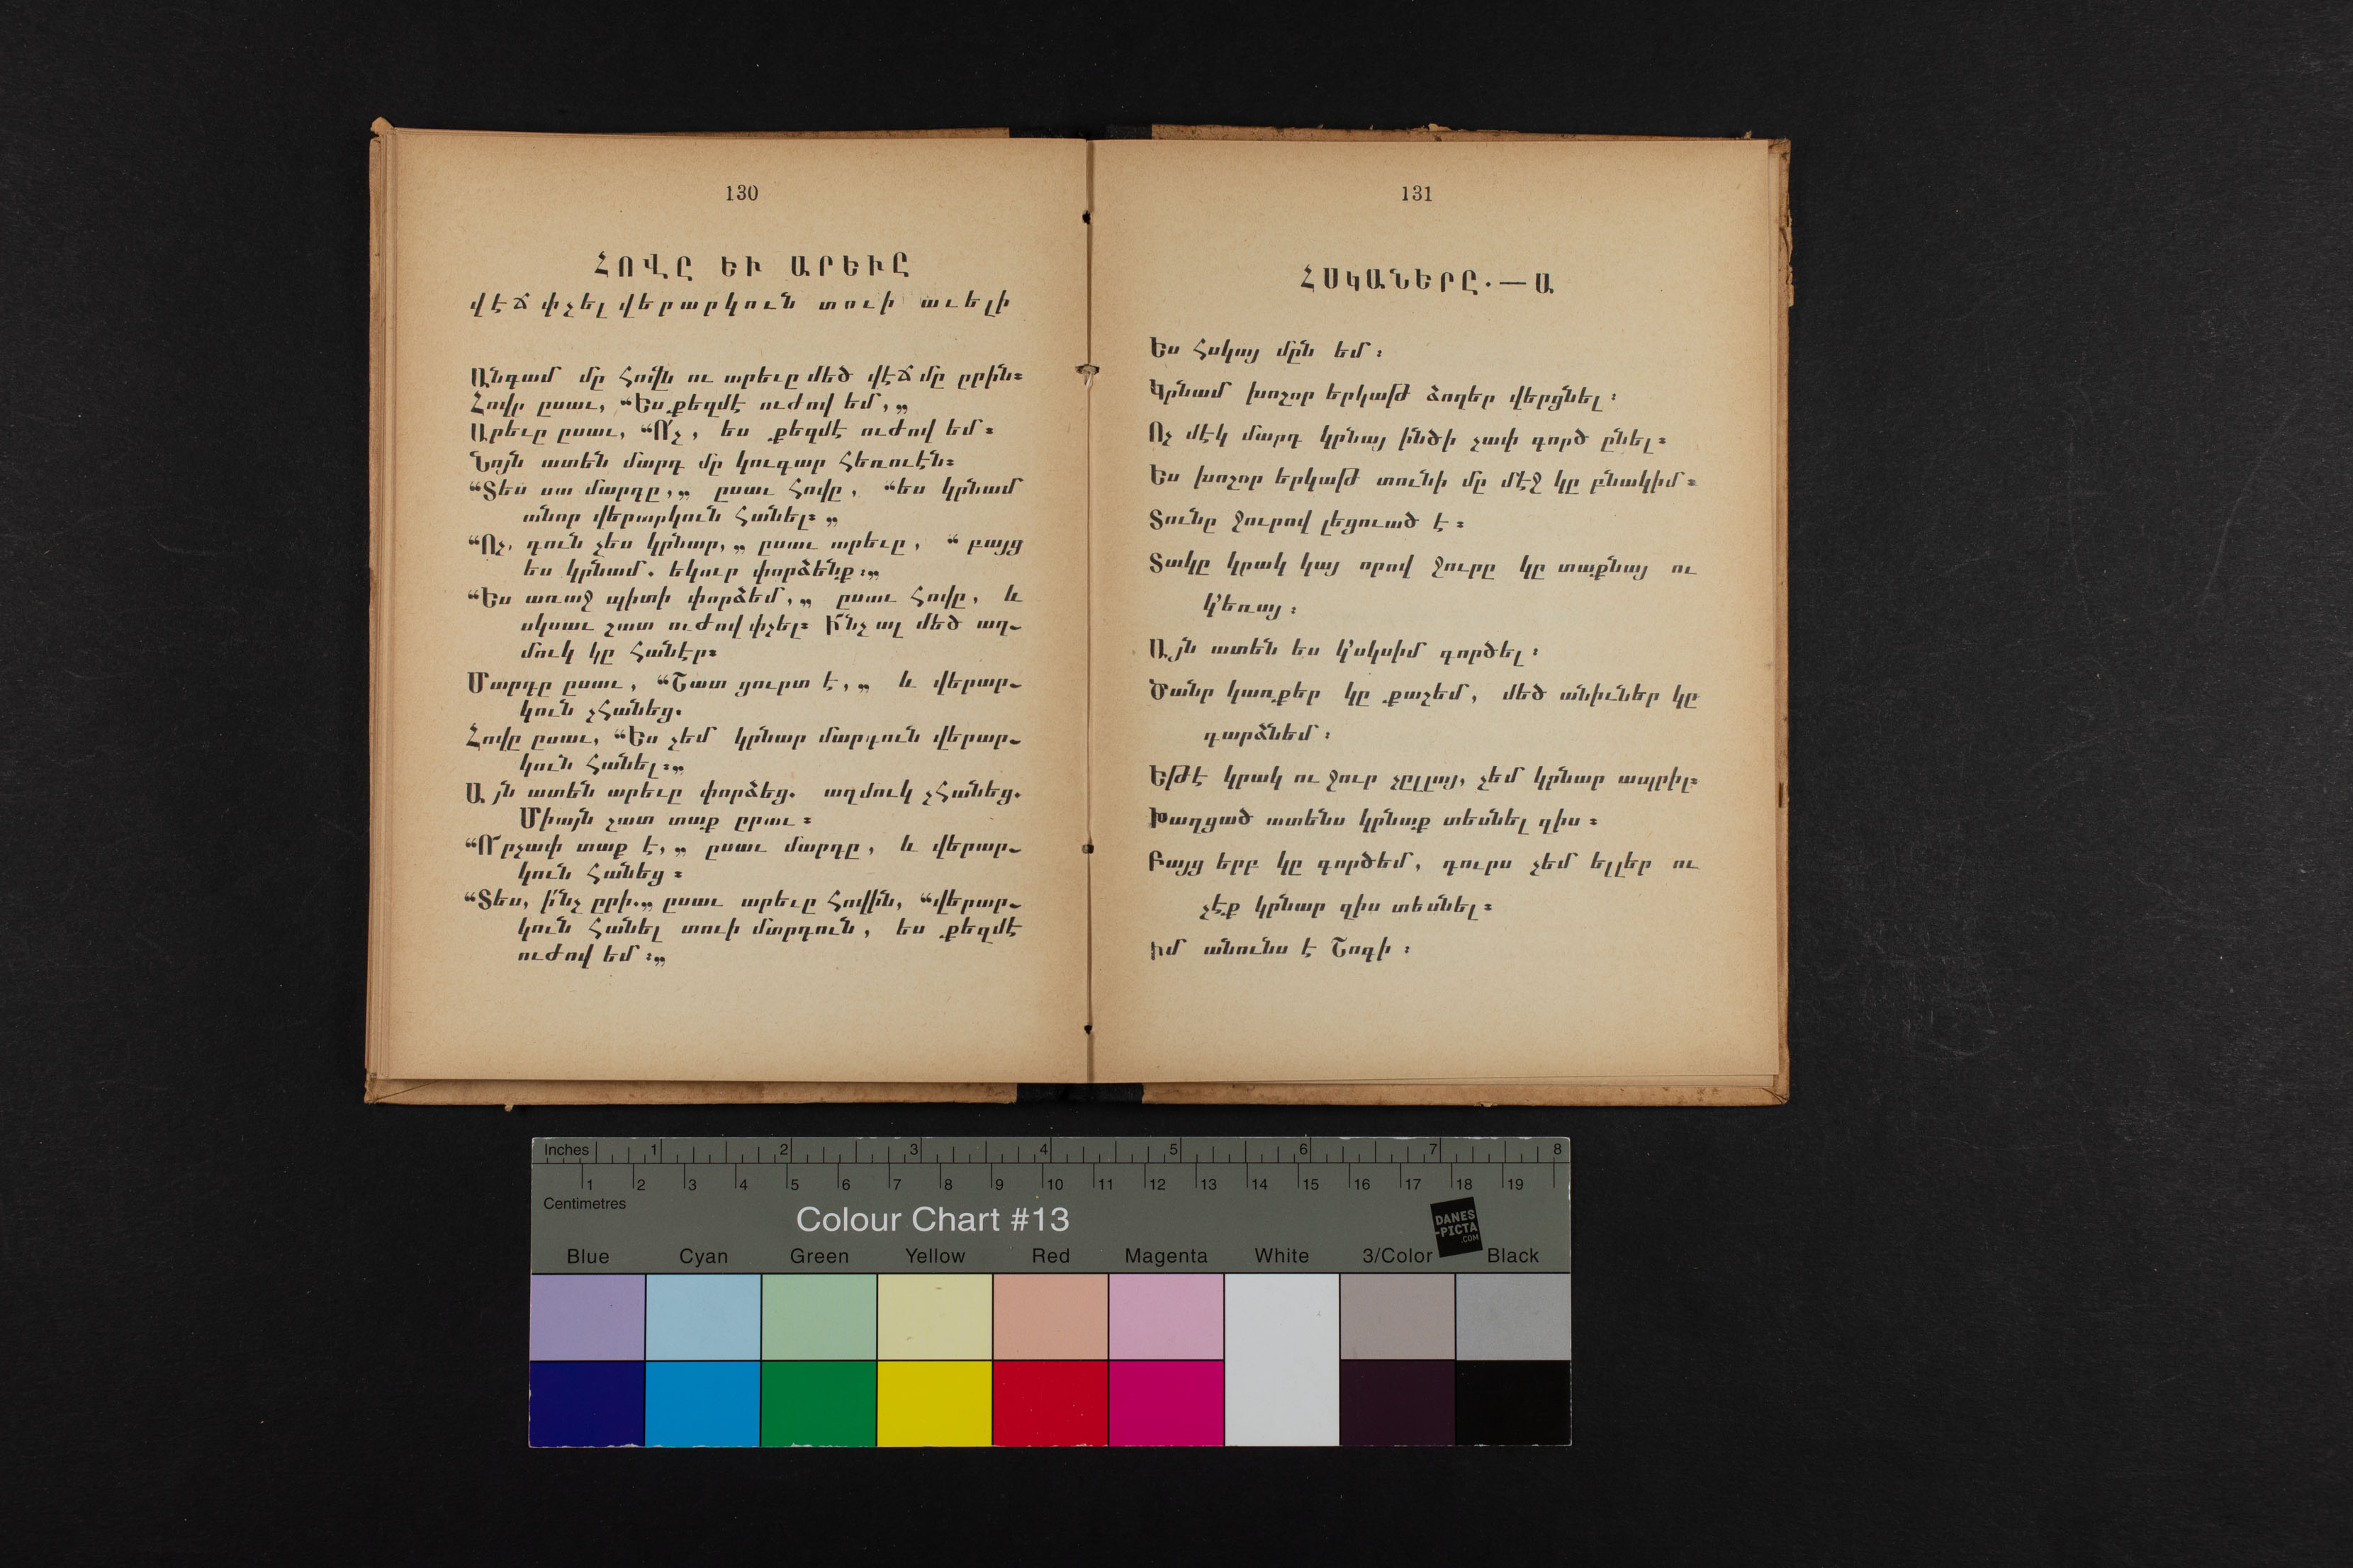 130
ՀՈՎԸ ԵՒ ԱՐԵՒԸ
վէճ փչել վերարկուն տուի աւելի
Անգամ մը հովն ու արեւը մեծ վէճ մը ըրին։
Հովը ըսաւ, “Ես քեզմէ ուժով եմ,„
Արեւը ըսաւ, “Ո՛չ, ես քեզմէ ուժով եմ։
Նոյն ատեն մարդ մը կուգար հեռուէն։
“Տես սա մարդը,„ ըսաւ հովը, “ես կրնամ
անոր վերարկուն հանել։„
“Ոչ, դուն չես կրնար,„ ըսաւ արեւը, “ բայց
ես կրնամ. եկուր փորձենք։„
“Ես առաջ պիտի փորձեմ,„ ըսաւ հովը, և
սկսաւ շատ ուժով փչել։ Ի՜նչ ալ մեծ աղ-
մուկ կը հանէր։
Մարդը ըսաւ, “Շատ ցուրտ է,„ և վերար-
կուն չհանեց.
Հովը ըսաւ, “Ես չեմ կրնար մարդուն վերար-
կուն հանել։„
Այն ատեն արեւը փորձեց. աղմուկ չհանեց.
Միայն շատ տաք ըրաւ։
“Ո՜րչափ տաք է,„ ըսաւ մարդը, և վերար-
կուն հանեց։
“Տես, ի՛նչ ըրի.„ ըսաւ արեւը հովին, “վերար-
կուն հանել տուի մարդուն, ես քեզմէ
ուժով եմ։„
131
ՀՍԿԱՆԵՐԸ.—Ա
Ես հսկայ մըն եմ։
Կրնամ խոշոր երկաթ ձողեր վերցնել։
Ոչ մէկ մարդ կրնայ ինծի չափ գործ ընել։
Ես խոշոր երկաթ տունի մը մէջ կը բնակիմ։
Տունը ջուրով լեցուած է։
Տակը կրակ կայ որով ջուրը կը տաքնայ ու
կ’եռայ։
Այն ատեն ես կ’սկսիմ գործել։
Ծանր կառքեր կը քաշեմ, մեծ անիւներ կը
դարձնեմ։
Եթէ կրակ ու ջուր չըլլայ, չեմ կրնար ապրիլ։
Խաղցած ատենս կրնաք տեսնել զիս։
Բայց երբ կը գործեմ, դուրս չեմ ելլեր ու
չէք կրնար զիս տեսնել։
Իմ անունս է Շոգի։
Inches 1 2 3 4 5 6 7 8
1 2 3 4 5 6 7 8 9 10 11 12 13 14 15 16 17 18 19
Centimetres
Colour Chart #13
DANES
-PICTA
.COM
Blue Cyan Green Yellow Red Magenta White 3/Color Black